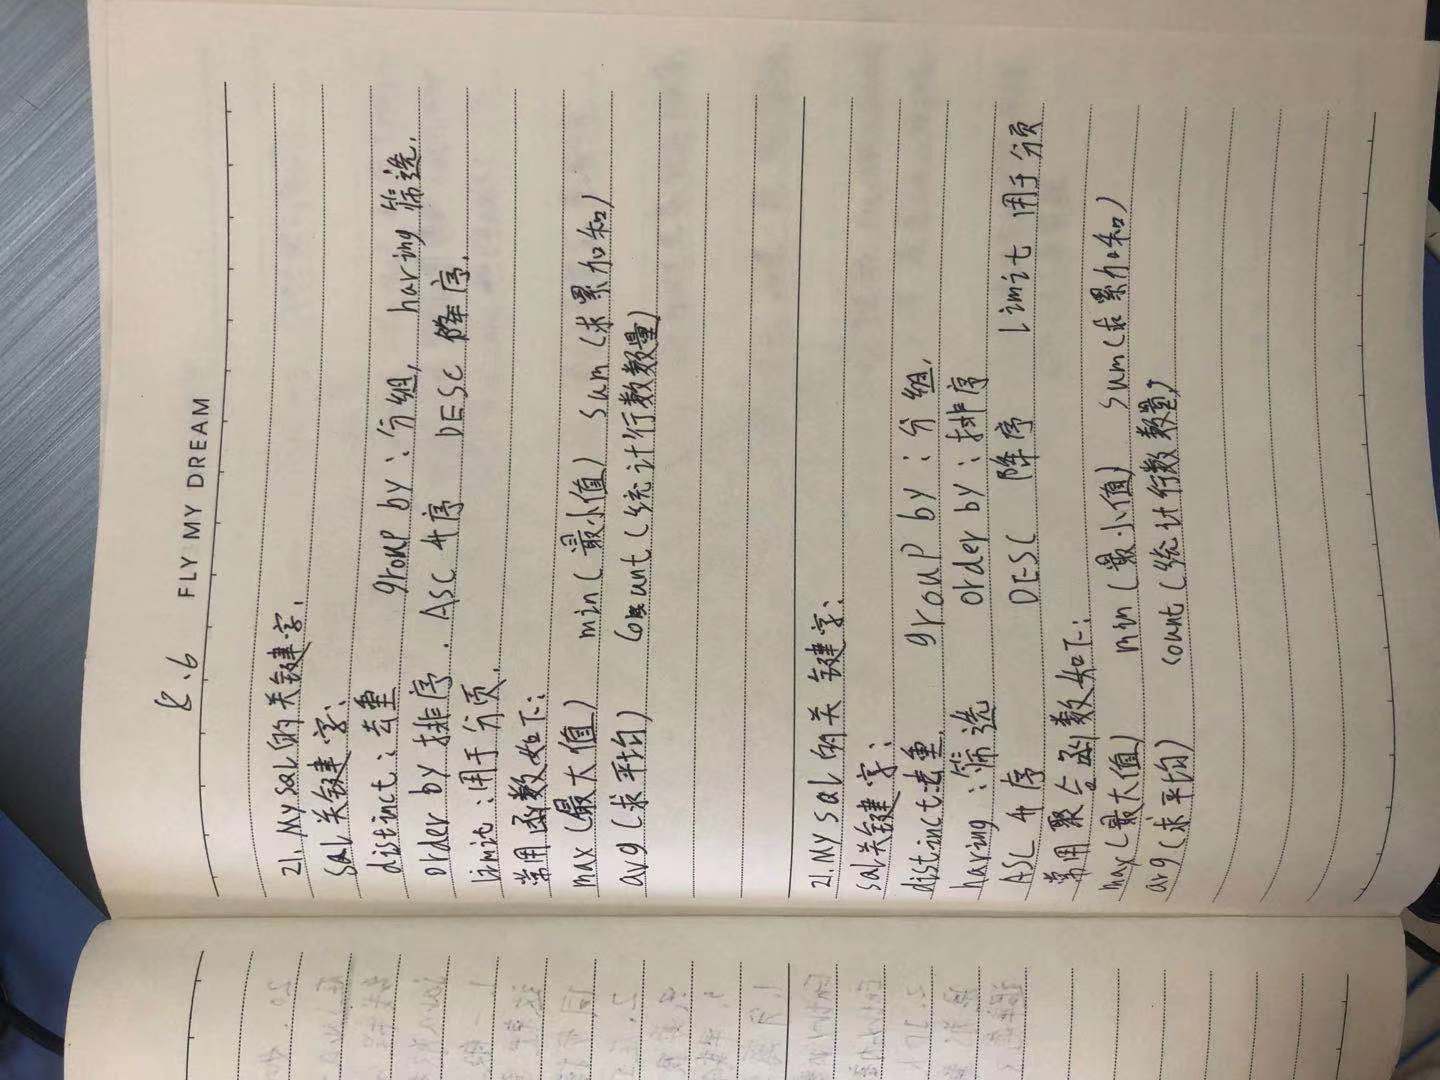 8.6
FLY MY DREAM
21.Mysql的关键字.
sql关键字:
distinct:去重 group by:分组, having 筛选.
order by 排序. ASC 升序 DESC 降序.
limit:用于分页.
常用函数如下:
max(最大值) min(最小值) sum(求累加和)
avg(求平均) count(统计行数数量)
21.Mysql的关键字:
sql关键字:
distinct去重. group by:分组.
having:筛选 order by:排序
ASC 升序 DESC 降序 limit 用于分页
常用聚合函数如下:
max(最大值) min(最小值) sum(求累加和)
avg(求平均) count(统计行数数量)